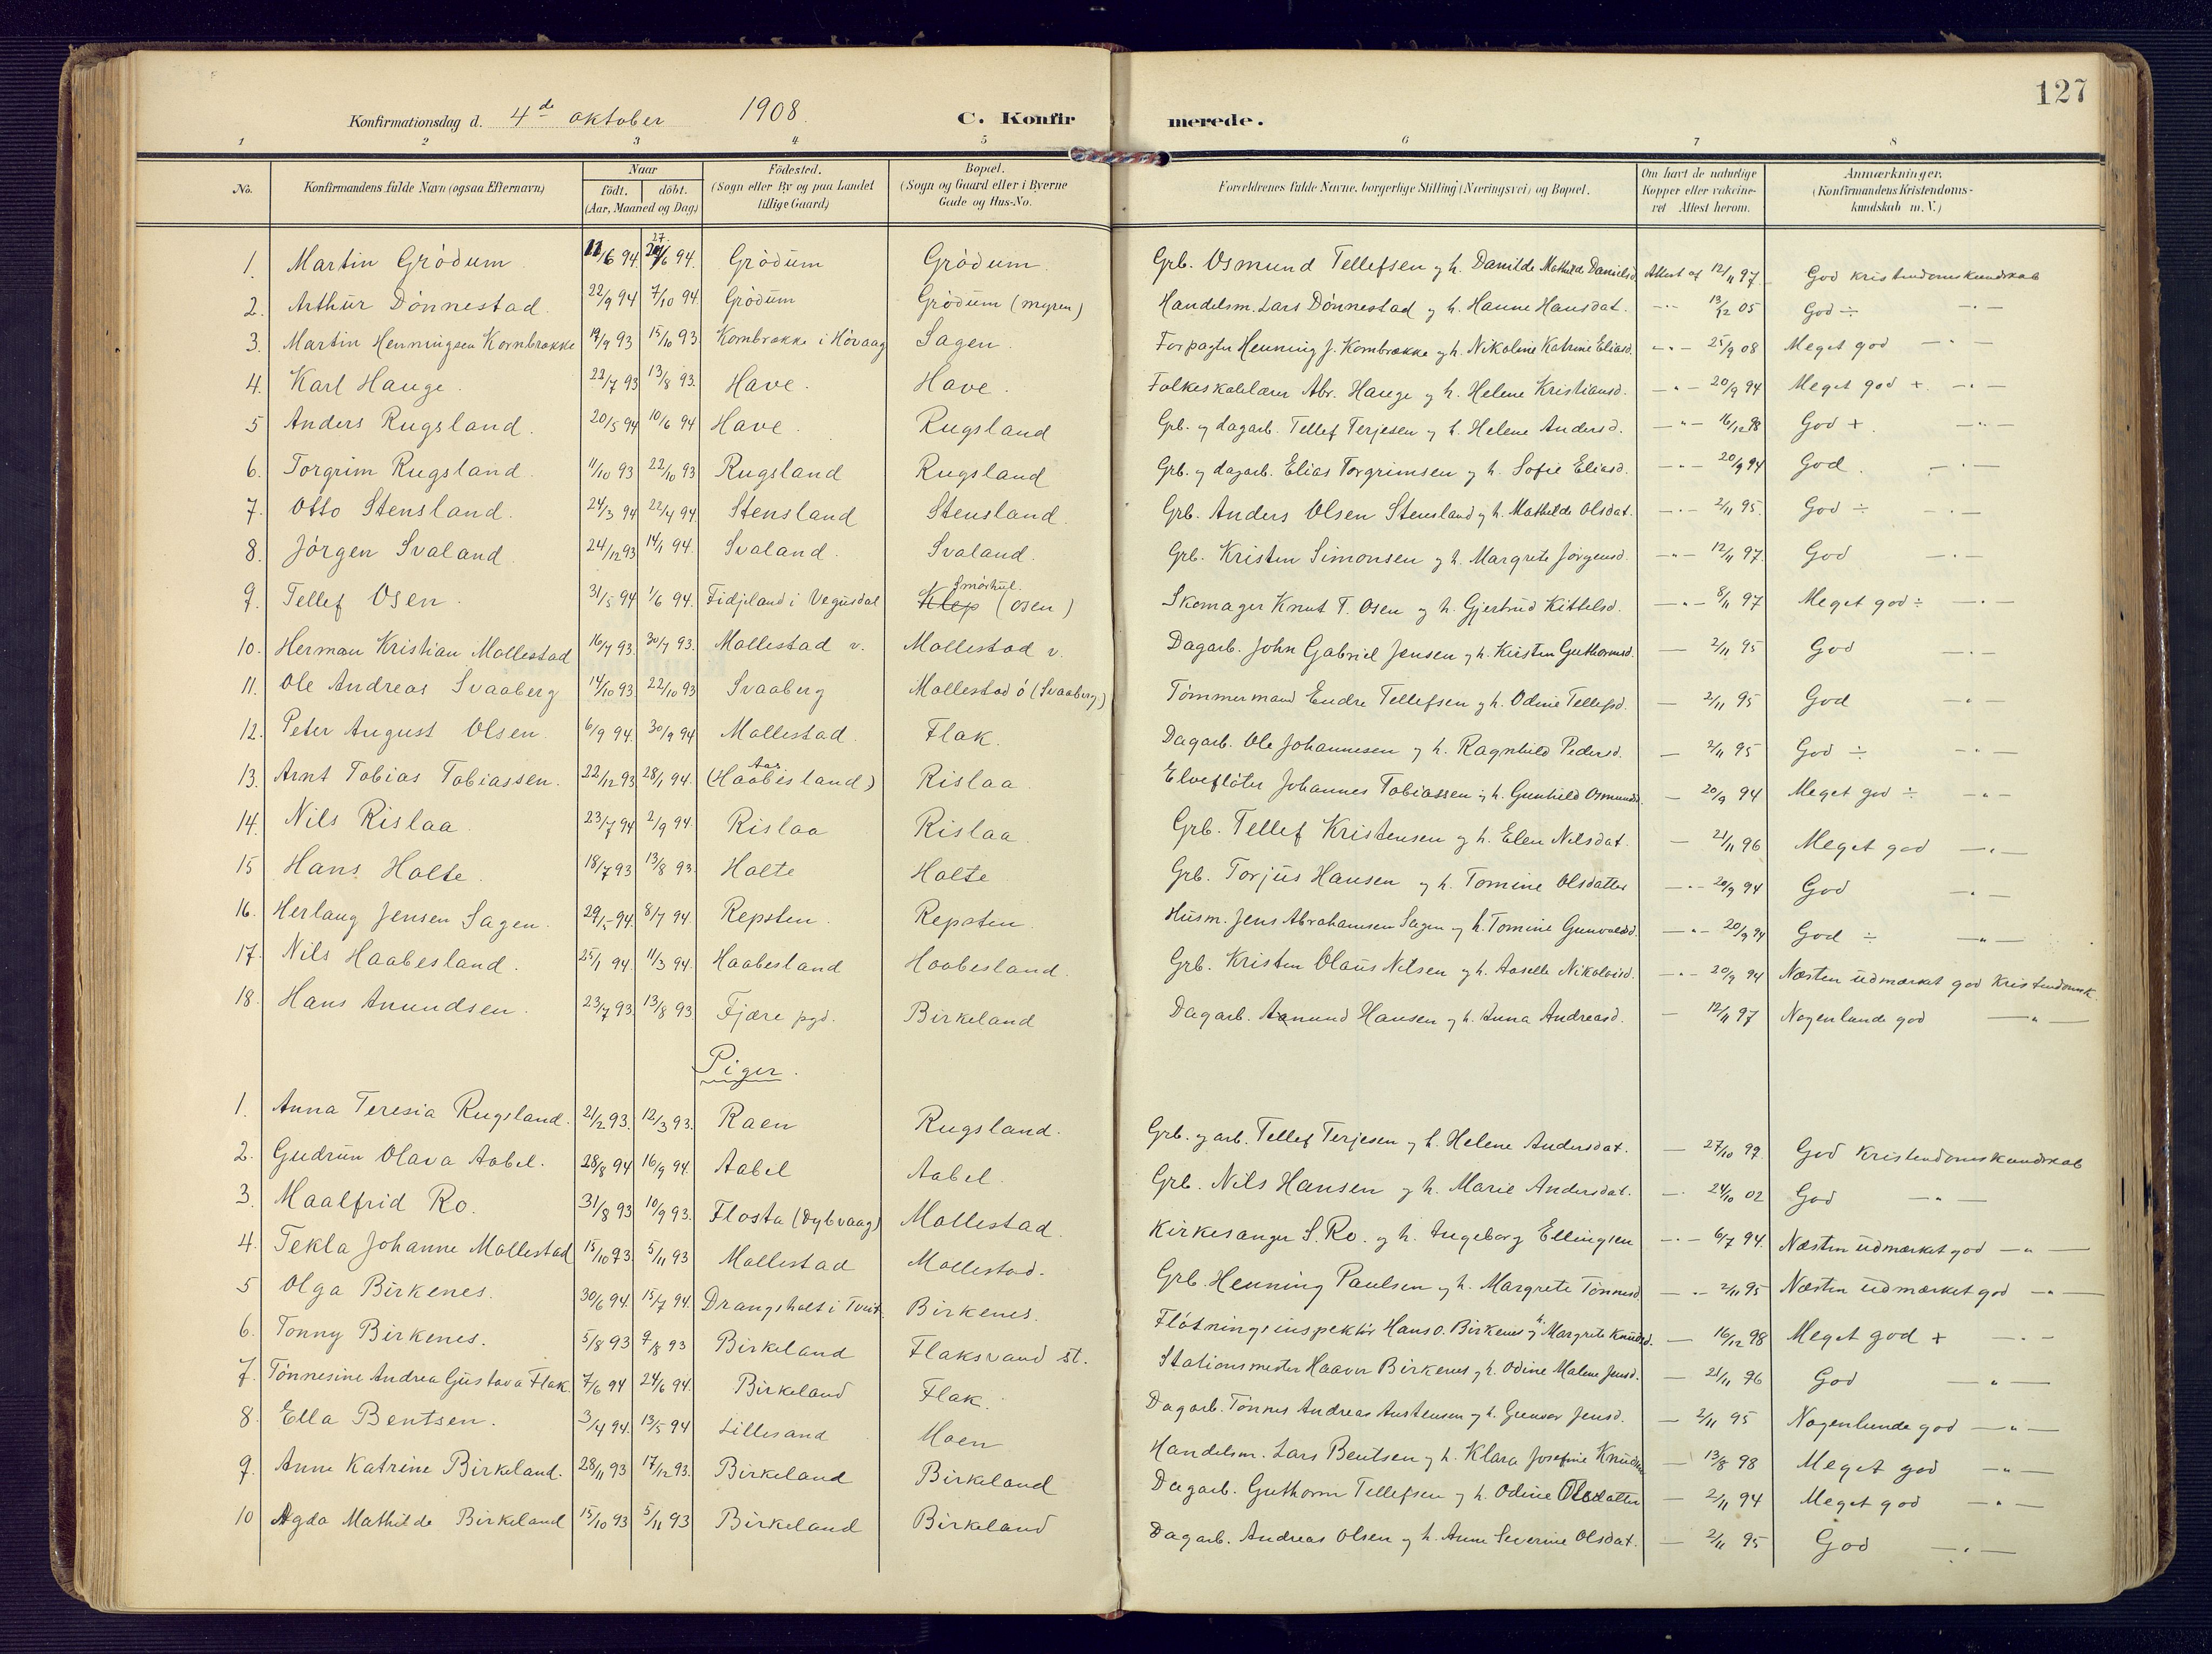 127
Konfirmationsdag d. 4de oktober 1908. C. Konfirmerede.
1 2 3 4 5 6 7 8
No. Konfirmandens fulde Navn (ogsaa Efternavn) Naar født. døbt. (Aar, Maaned og Dag) Fødested. (Sogn eller By og paa Landet tillige Gaard) Bopæl. (Sogn og Gaard eller i Byerne Gade og Hus-No. Forældrenes fulde Navne, borgerlige Stilling (Næringsvei) og Bopæl. Om havt de naturlige Kopper eller vakcineret Attest herom. Anmærkninger. (Konfirmandens Kristendomskundskab m. V.)
1. Martin Grödum 11/6 94 27/6 94. Grödum Grödum. Grb. Osmund Tellefsen og h. Danilde Mathilde Danielsd. Attest af 12/11 97. God kristendomskundskab
2. Arthur Dönnestad. 22/9 94 7/10 94. Grödum Grödum (myren) Handelsm. Lars Dönnestad og h. Hanne Hansdat. -"- 13/12 05 God ÷ -"-
3. Martin Henningsen Kornbrække 19/9 93 15/10 93. Kornbrække i Hövaag Sagen. Forpagter Henning J. Kornbrække og h. Nikoline Katrine Eliasd. -"- 25/9 08 Meget god -"-
4. Karl Hauge. 22/7 93 13/8 93. Have. Have. Folkeskolelærer Abr. Hauge og h. Helene Kristiansd. -"- 20/9 94 Meget god + -"-
5 Anders Rugsland. 20/5 94 10/6 94 Have. Rugsland Grb. og dagarb. Tellef Terjesen og h. Helene Andersd. -"- 16/12 98 God + -"-
6. Torgrim Rugsland. 11/10 93 22/10 93 Rugsland Rugsland Grb. og dagarb. Elias Torgrimsen og h. Sofie Eliasd. -"- 20/9 94 God. -"-
7. Otto Stensland. 24/3 94 22/4 94. Stensland Stensland. Grb. Anders Olsen Stensland og h. Mathilde Olsdat. -"- 2/11 95. God ÷ -"-
8. Jörgen Svaland. 24/12 93 14/1 94. Svaland. Svaland. Grb. Kristen Simonsen og h. Margrete Jörgensd. -"- 12/11 97. God -"-
9. Tellef Osen. 31/5 94 1/6 94. Fidjeland i Vegusdal Klep Smörhul (osen) Skomager Knut T. Osen og h. Gjertrud Kittelsd. -"- 8/11 97 Meget god ÷ -"-
10. Herman Kristian Mollestad 16/7 93. 30/7 93. Mollestad v. Mollestad v. Dagarb. John Gabriel Jensen og h. Kirsten Guthormsd. - 2/11 95 God -"-
11. Ole Andreas Svaaberg 14/10 93 22/10 93 Svaaberg Mollestad ö (Svaaberg) Tömmermand Endre Tellefsen og h. Odine Tellefsd. - 2/11 95 God -"-
12. Peter August Olsen. 6/9 94. 30/9 94 Mollestad. Flak. Dagarb. Ole Johannesen og h. Ragnhild Pedersd. - 2/11 95 God ÷ -"-
13. Arnt Tobias Tobiassen. 22/12 93 28/1 94. (Haabesland) Rislaa Elveflöter Johannes Tobiassen og h. Gunhild Osmundsd. - 20/9 94 Meget god ÷ -"-
14. Nils Rislaa. 23/7 94 2/9 94. Rislaa Rislaa. Grb. Tellef Kristensen og h. Elen Nilsdat. - 21/11 96 Meget god -"-
15 Hans Holte. 18/7 93 13/8 93. Holte Holte Grb. Torjus Hansen og h. Tomine Olsdatter -"- 20/9 94 God -"-
16. Herlaug Jensen Sagen. 29/5 94. 8/7 94. Repsten. Repsten Husm. Jens Abrahamsen Sagen og h. Tomine Gunvaldsd. -"- 20/9 94 God ÷ -"-
17. Nils Haabesland. 25/1 94. 11/3 94. Haabesland Haabesland. Grb. Kristen Olaus Nilsen og h. Aaselle Nikolaisd. -"- 20/9 94 Næsten udmærket god Kristendomsk.
18. Hans Anundsen. 23/7 93. 13/8 93. Fjære pgd. Birkeland Dagarb. Aanund Hansen og h. Anna Andreasd. - 12/11 97 Nogenlunde god -"-
Piger.
1. Anna Teresia Rugsland. 21/2 93. 12/3 93. Raen Rugsland. Grb. og arb. Tellef Terjesen og h. Helene Andersdat. - 27/10 99. God kristendomskundskab
2. Gudrun Olava Aabel. 28/8 94 16/9 94. Aabel Aabel. Grb. Nils Hansen og h. Marie Andersdat. -" 24/10 02 God -"-
3. Maalfrid Ro. 31/8 93 10/9 93. Flosta (Dybvaag) Mollestad. Kirkesanger S. Ro. og h. Ingeborg Ellingsen -"- 6/7 94. Næsten udmærket god -"-
4. Tekla Johanne Mollestad 15/10 93. 5/11 93 Mollestad Mollestad. Grb. Henning Paulsen og h. Margrete Tönnesd. -"- 2/11 95 Næsten udmærket god -"-
5 Olga Birkenes. 30/6 94. 15/7 94. Drangsholt i Tveit. Birkenes. Flötningsinspektör Hans O. Birkenes og h. Margrete Knudsd. - 16/12 98 Meget god + -"-
6. Tonny Birkenes. 5/8 93 9/8 93 Birkeland Flaksvand st. Stationsmester Haavor Birkenes og h. Odine Malene Jensd. - 21/11 96 God -"-
7. Tönnesine Andrea Gustava Flak. 7/6 94 24/6 94. Birkeland Flak. Dagarb. Tönnes Andreas Austensen og h. Gunvor Jensd. - 2/11 95 Nogenlunde god -"-
8. Ella Bentsen. 3/4 94. 13/5 94 Lillesand Moen Handelsm. Lars Bentsen og h. Klara Josefine Knudsen - 13/8 98 Meget god -"-
9. Anne Katrine Birkeland. 28/11 93 17/12 93. Birkeland Birkeland Dagarb. Guthorm Tellefsen og h. Odine Olsdatter - 2/11 94 Meget god -"-
10 Agda Mathilde Birkeland 15/10 93 5/11 93 Birkeland Birkeland Dagarb. Andreas Olsen og h. Anne Severine Olsdat. - 2/11 95 God -"-